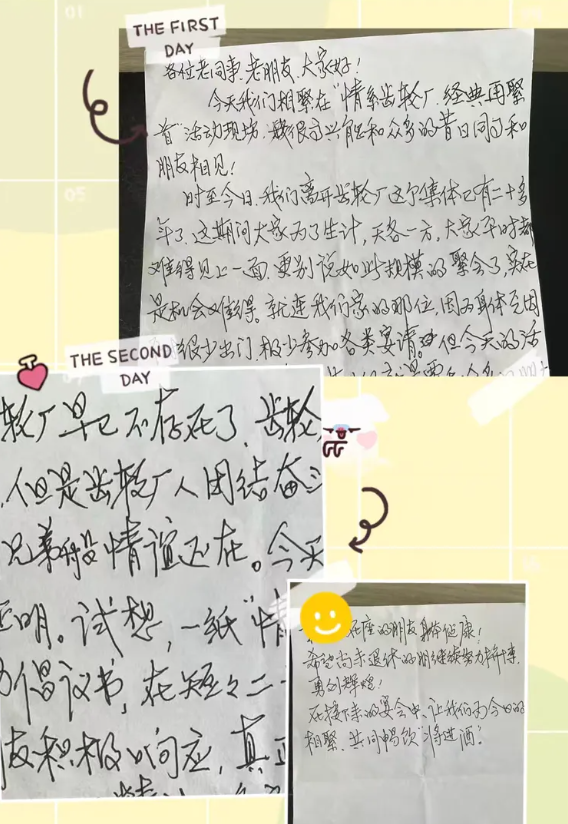 THE FIRST
DAY
各位老同事.老朋友.大家好!
今天我们相聚在"情系齿轮厂.经典再聚
首"活动现场,我很高兴能和众多的昔日同事和
朋友相见!
时至今日,我们离开齿轮厂这个集体已有二十多
年了.这期间大家为了生计,天各一方,大家平时都
难得见上一面.更别说如此规模的聚会了,实在
是机会难得。就连我们家的那位,因为身体原因
很少出门.极少参加各类宴请。但今天的活
THE SECOND
DAY
轮厂早已不存在了.齿轮
.但是齿轮厂人团结奋
兄弟般情谊还在。今天
证明。试想,一纸"情
倡议书,在短短二
友积极响应,真正
在座的朋友身体健康!
希望尚未退休的朋继续努力拼搏,
再创辉煌!
在接下来的宴会中,让我们为今日的
相聚.共同畅饮"将进酒"